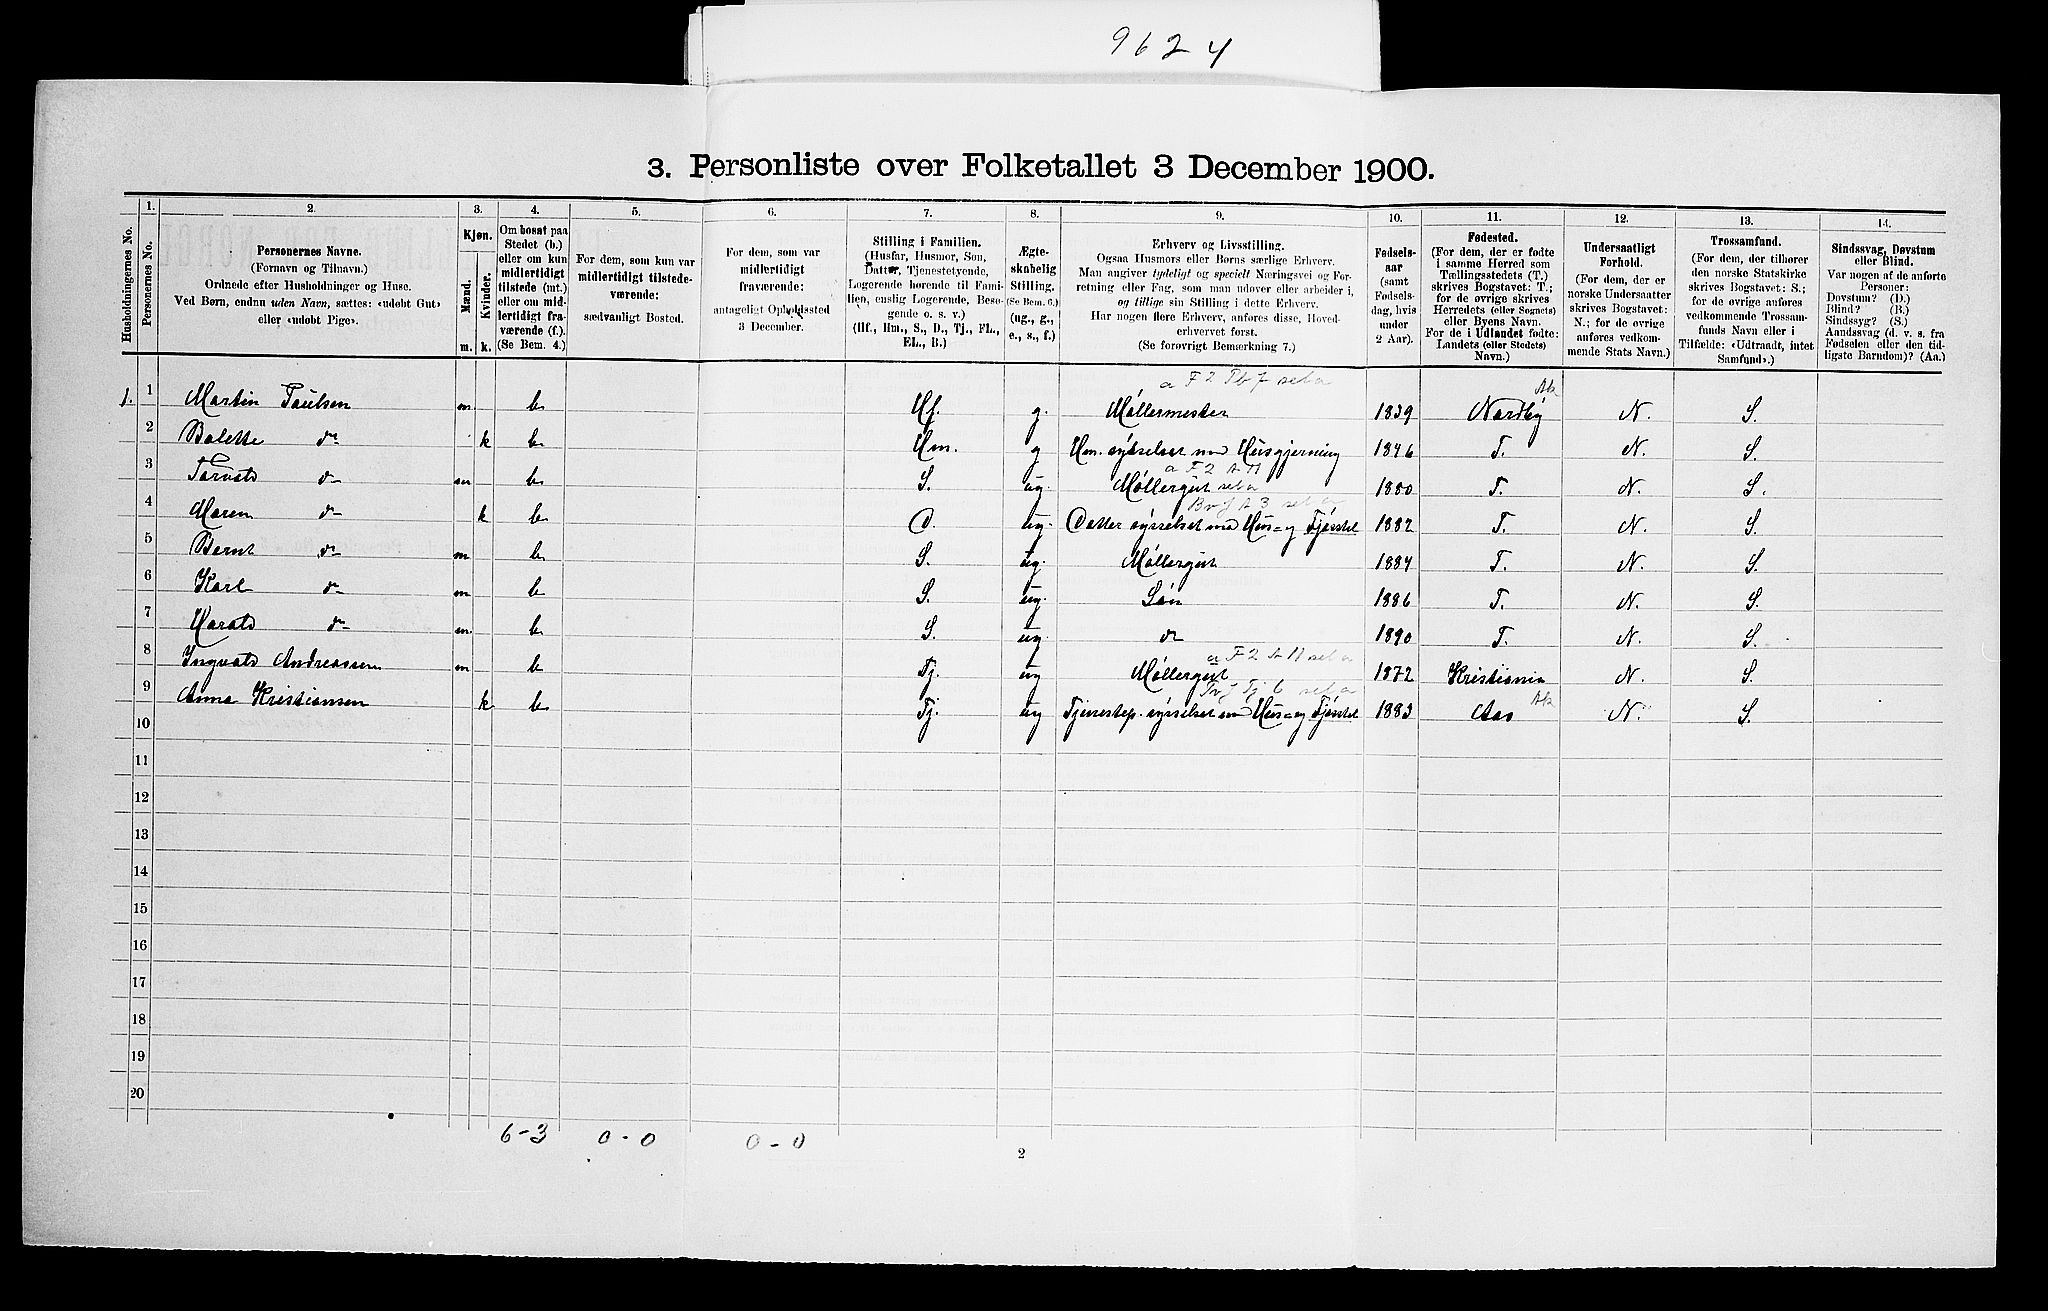 9624
3. Personliste over Folketallet 3 December 1900.
Husholdningernes No.
1. Personernes No.
2. Personernes Navne.
(Fornavn og Tilnavn.)
Ordnede efter Husholdninger og Huse.
Ved Børn, endnu uden Navn, sættes: «udøbt Gut»
eller «udøbt Pige».
3. Kjøn.
Mænd. m.
Kvinder. k.
4. Om bosat paa
Stedet (b.)
eller om kun
midlertidigt
tilstede (mt.)
eller om mid-
lertidigt fra-
værende (f.).
(Se Bem. 4.)
5. For dem, som kun var
midlertidigt tilstede-
værende:
sædvanligt Bosted.
6. For dem, som var
midlertidigt
fraværende:
antageligt Opholdssted
3 December.
7. Stilling i Familien.
(Husfar, Husmor, Søn,
Datter, Tjenestetyende,
Logerende hørende til Fami-
lien, enslig Logerende, Besø-
gende o. s. v.)
(Hf., Hm., S., D., Tj., FL.,
EL., B.)
8. Ægte-
skabelig
Stilling.
(Se Bem. 6.)
(ug., g.,
e., s., f.)
9. Erhverv og Livsstilling.
Ogsaa Husmors eller Børns særlige Erhverv.
Man angiver tydeligt og specielt Næringsvei og For-
retning eller Fag, som man udover eller arbeider i,
og tillige sin Stilling i dette Erhverv.
Har nogen flere Erhverv, anføres disse, Hoved-
erhvervet først.
(Se forøvrigt Bemærkning 7.)
10. Fødsels-
aar
(samt
Fødsels-
dag, hvis
under
2 Aar).
11. Fødested.
(For dem, der er fødte
i samme Herred som
Tællingsstedets (T.)
skrives Bogstavet: T.;
for de øvrige skrives
Herredets (eller Sognets)
eller Byens Navn.
For de i Udlandet fødte:
Landets (eller Stedets)
Navn.)
12. Undersaatligt
Forhold.
(For dem, der er
norske Undersaatter
skrives Bogstavet:
N.; for de øvrige
anføres vedkom-
mende Stats Navn.)
13. Trossamfund.
(For dem, der tilhører
den norske Statskirke
skrives Bogstavet: S.;
for de øvrige anføres
vedkommende Trossam-
funds Navn eller i
Tilfælde: «Udtraadt, intet
Samfund».)
14. Sindssvag, Døvstum
eller Blind.
Var nogen af de anførte
Personer:
Døvstum? (D.)
Blind? (B.)
Sindssyg? (S.)
Aandssvag (d. v. s. fra
Fødselen eller den tid-
ligste Barndom)? (Aa.)
1. 1 Martin Paulsen m. b. Hf. g. Møllermester 1839 Nordby Ak N. S.
2 Bolette do k b. Hm. g Hm. sysselsat med Husgjerning 1846 T. N. S.
3 Torvald do m b. S. ug. Møllergut 1880 T. N. S.
4 Maren do k b. D. ug. Datter sysselsat med Hus- og Fjøsstel 1882 T. N. S.
5 Bernt do m b. S. ug. Møllergut 1884 T. N. S.
6 Karl do m b. S. ug. Søn 1886 T. N. S.
7 Harald do m. b. S. ug. do 1890 T. N. S.
8 Ingvald Andreassen m b. Tj. ug Møllergut 1872 Kristiania N. S.
9 Anna Kristiansen k b. Tj. ug Tjenestep. sysselsat med Hus- og Fjøsstel 1883 Aas Ak N. S.
10
11
12
13
14
15
16
17
18
19
20
6-3 0-0 0-0
2